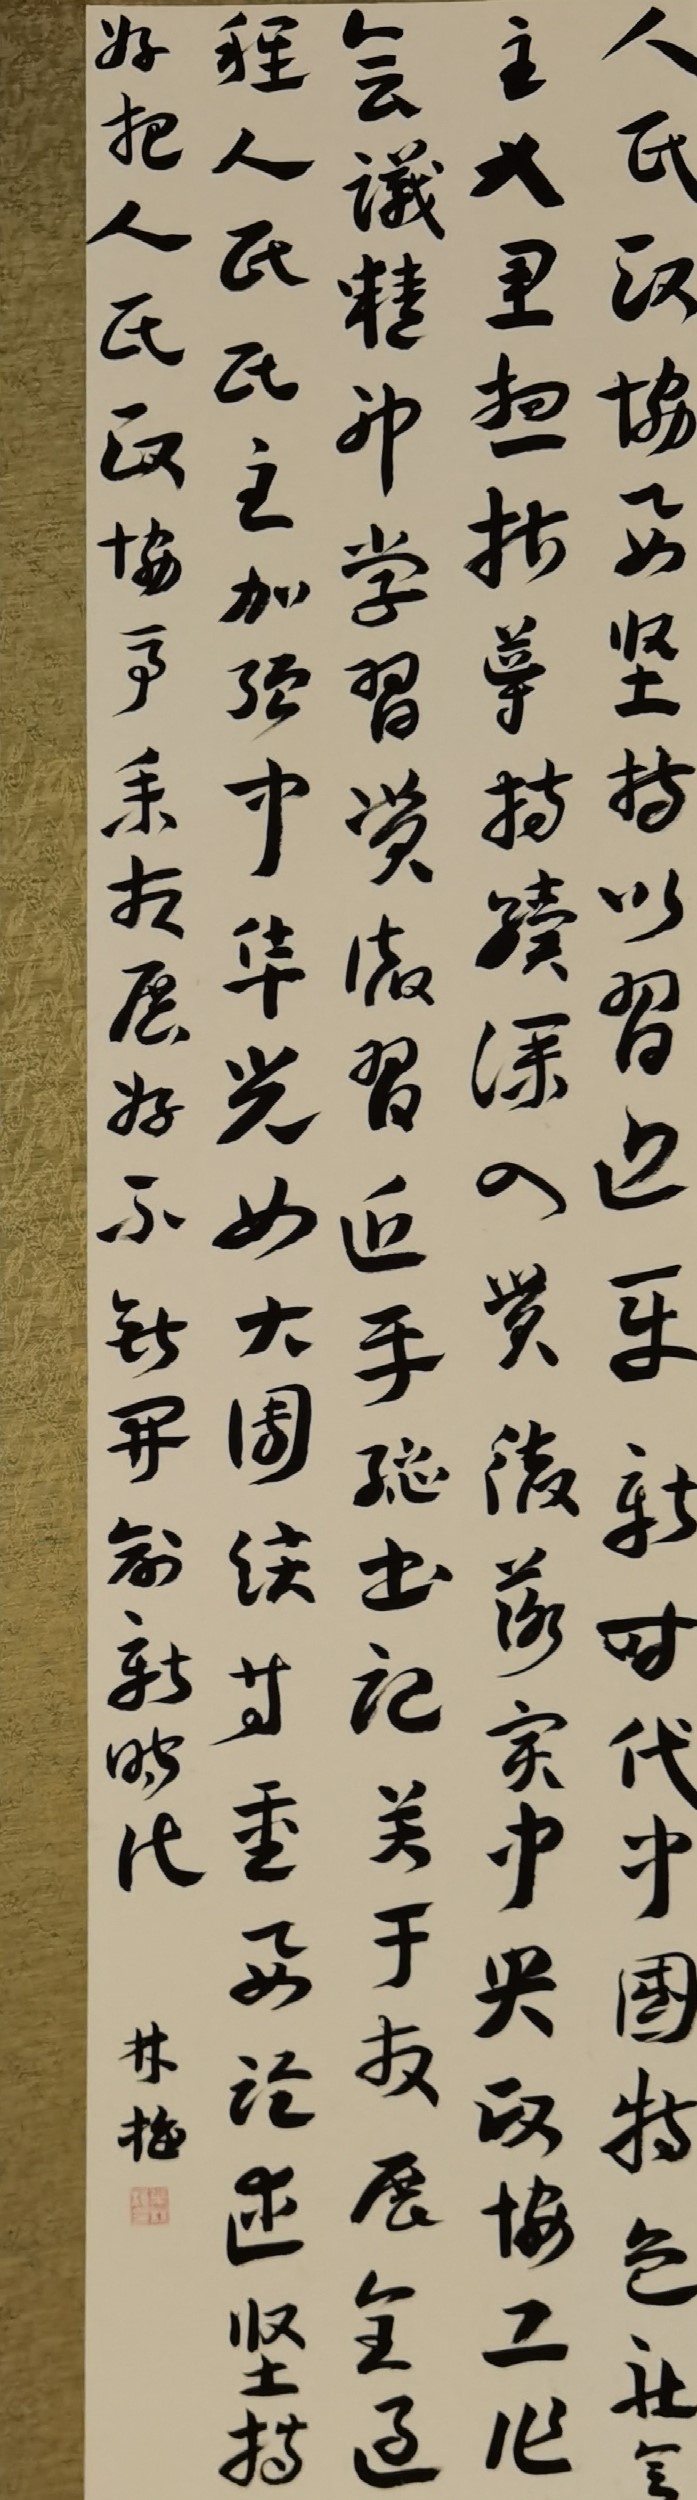 人民政协要坚持以習近平新时代中國特色社会
主义思想指導持續深入贯徹落实中央政协工作
会議精神学習贯徹習近平総书记关于发展全过
程人民民主加强中华儿女大团结等重要论述坚持
好把人民政協事業发展好不断开创新时代
林梅